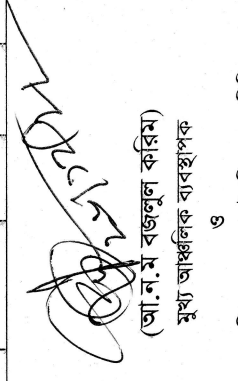 (আ.ন.ম বজলুল করিম)
মুখ্য আঞ্চলিক ব্যবস্থাপক
ও